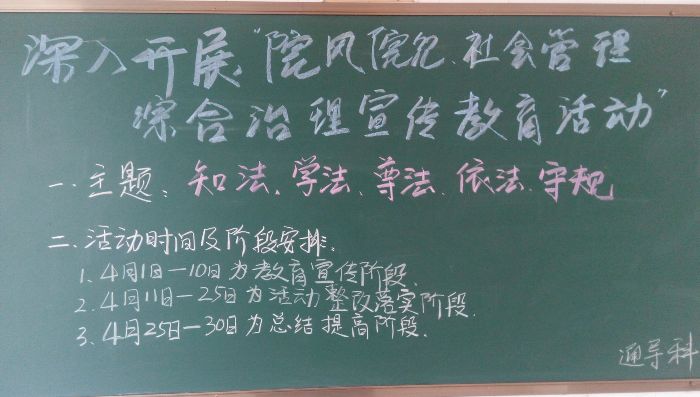 深入开展“院风院纪、社会管理
综合治理宣传教育活动”
一、主题：知法、学法、尊法、依法、守规
二、活动时间及阶段安排：
1、4月1日—10日为教育宣传阶段、
2、4月11日—25日为活动整改落实阶段、
3、4月25日—30日为总结提高阶段.
通导科